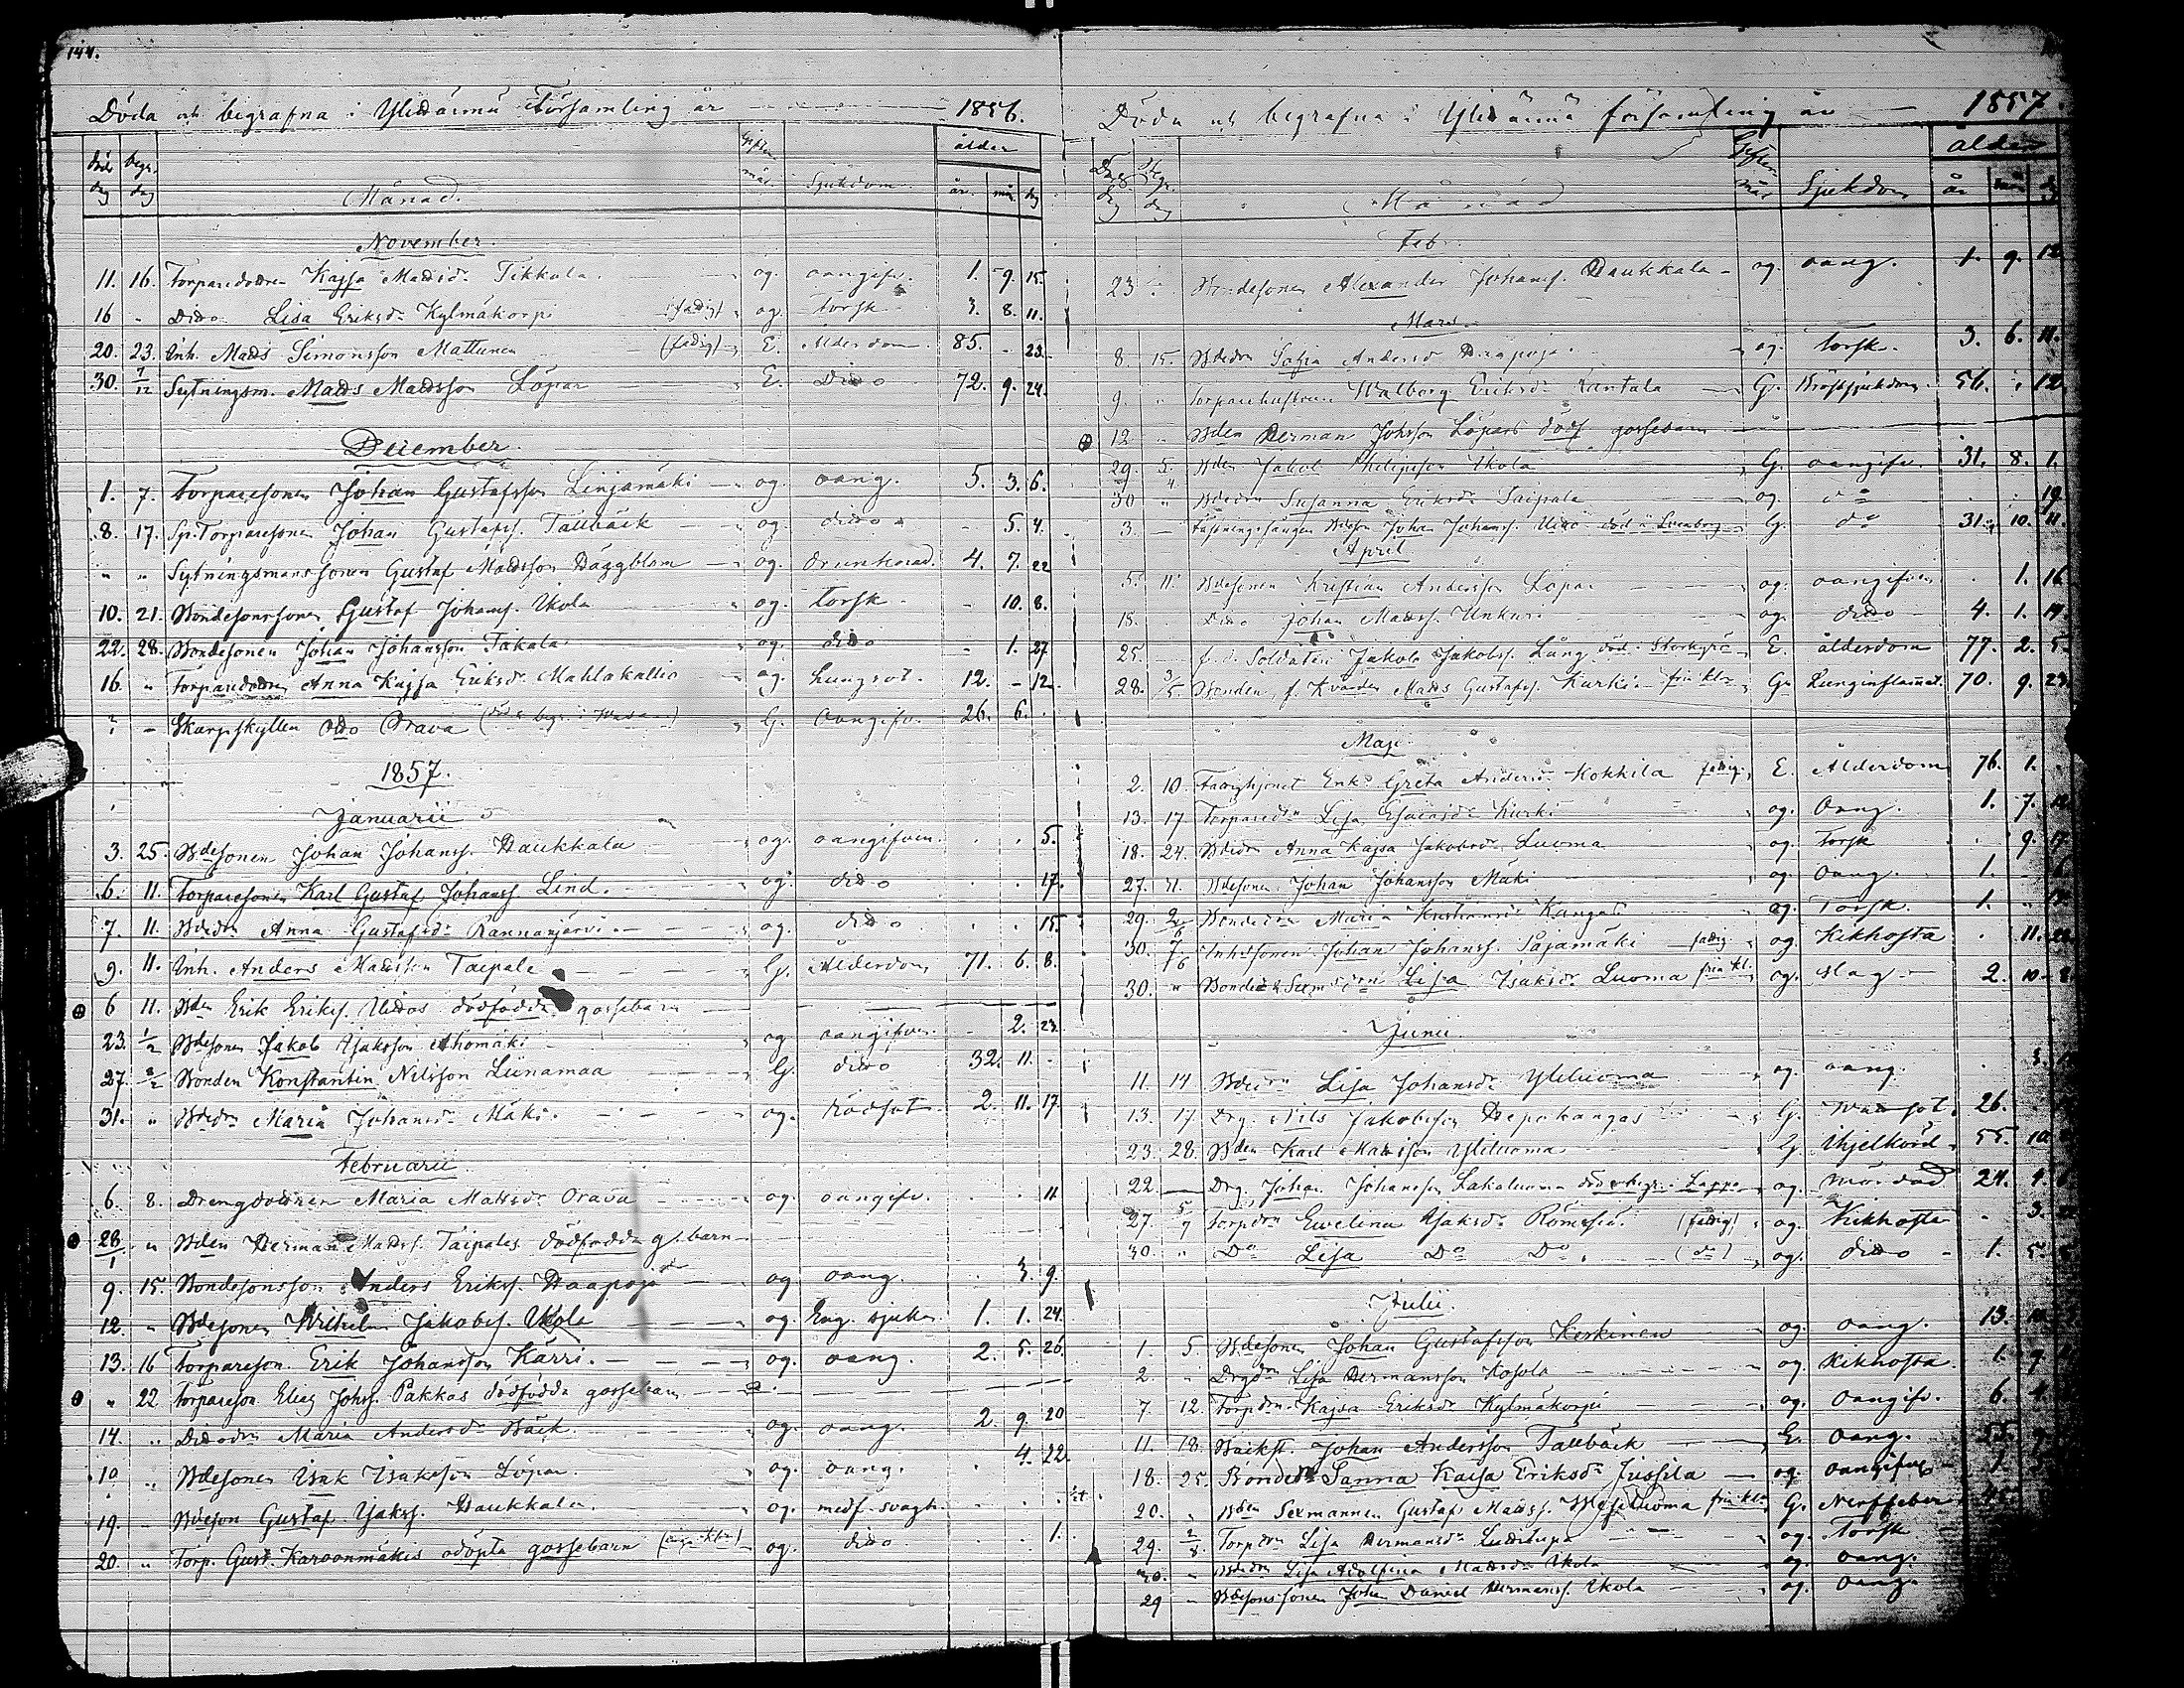 144.
Döda och begrafna i Ylihärmä Församling år 1856.
död dag begr. dag Månad. Giftermål Sjukdom ålder år. mån dag
November.
11. 16. Torparedottren Kajsa Mattsdr Tikkala. og. oangifv. 1. 9. 15.
16 " Ditto Lisa Eriksdr Kylmäkorpi (fattig) og. torsk 3. 8. 11.
20. 23. Inh. Matts Simonsson Mattinen (fattig) E. Ålderdom. 85. - 23.
30. 7/12 Sytningsm. Matts Mattsson Löpar E. Ditto 72. 9. 24.
December.
1. 7. Torparesonen Johan Gustafsson Linjamäki og. oang. 5. 3. 6.
8. 17. Sp. Torparesonen Johan Gustafss. Tallbäck og. ditto - 5. 4.
" " Sytningsmanssonen Gustaf Mattsson Häggblom og. drunknad. 4. 7. 22
10. 21. Bondesonssonen Gustaf Johanss. Ikola og. torsk - 10. 8.
22. 28. Bondesonen Johan Johansson Takala og. ditto - 1. 27
16. " Torparedottren Anna Kajsa Eriksdr Mahlakallio og. Lungsot. 12. - 12.
? - Skarpskytten Otto Orava (död o. begr. i Wasa) G. Oangifv. 26. 6. .
1857.
Januarii
3. 25. Bdesonen Johan Johanss. Haukkala og. oangifven. . . 5.
6. 11. Torparesonen Karl Gustaf Johanss. Lind. og. ditto . . 17.
7. 11. Bdedtr Anna Gustafsdr Rannanjärvi og. ditto . . 15.
9. 11. Inh. Anders Mattsson Taipale G. Ålderdom 71. 6. 8.
6 11. Bden Erik Erikss. Uitos dödfödda gossebarn
23. 1/2 Bdesonen Jakob Isaksson Ahomäki og oangifven. - 2. 23.
27. 8/2 Bonden Konstantin Nilsson Liinamaa G. ditto 32. 11. -
31. " Bdedr Maria Johansdr Mäki. og. rödsot. 2. 11. 17.
Februarii
6. 8. Drengdottren Maria Mattsdr Orava og. oangifv. . . 11
28/1 " Bden Herman Mattss. Taipales dödfödda g. barn
9. 15. Bondesonsson Anders Erikss. Haapoja og oang. . 3. 9.
12. " Bdesonen Wilhelm Jakobss. Ikola og. Eng. sjukan 1. 1. 24.
13. 16 Torpareson. Erik Johansson Kärri. og. oang. 2. 5. 26.
" 22 Torpareson Elias Johss. Pakkas dödfödda gossebarn
14. " Ditto dtr Maria Andersdr Bäck. og. oang. 2. 9. 20
10 " Bdesonen Isak Isaksson Löpar. og. oang. . 4. 22.
19. " Bdeson Gustaf Isakss. Haukkala. og. medf. svagh. . . .
20. " Torp. Gust. Karoonmäkis odöpta gossebarn og. ditto . . 1.
Döda och begrafna i Ylihärmä församling år 1857.
Död dag Begr. dag Månad Giftermål Sjukdom ålder år mån dg
Feb.
23 Bondesonen Alexander Johanss. Haukkala og. oang. 1. 9. 12
Mars.
8. 15. Bdedtr Sofia Andersdr Haapoja. og. torsk. 3. 6. 11.
9. " Torparehustrun Walborg Eriksdr Rantala G. Bröstsjukdom. 56. . 12
12 " Bden Herman Johsson Löpars dödf gossebarn
29. 5/4 Bden Jakob Philipsson Ikola G. oangifv. 31. 8. 1.
30 " Bdedtr Susanna Eriksdr Taipale og. do . . 19.
3. - Fästningsfången Bdeson Johan Johanss. Uitto död i Sveaborg G. do 31. 10. 11.
April
5. 11. Bdesonen Kristian Andersson Löpar og. oangifven . 1. 16
18. Ditto Johan Mattss. Unkuri og. ditto 4. 1. 14
25. f.d. Soldaten Jakob Jakobss. Lång död i Storkyro E. ålderdom 77. 2. 5.
28. 3/5. Bonden, f. Kyrkov. Matts Gustafss. Kurki fri kl. G. Lunginflamat. 70. 9. 23.
Maji
2. 10. Fattighjonet Enk. Greta Andersdr Kokkila fattig. E. Ålderdom 76. 1. .
13. 17 Torparedtr Lisa Esaiasdr Kurki og. Oang. 1. 7. 12
18. 24. Bdedtr Anna Kajsa Jakobsdr Luoma og. Torsk . 9. 17
27. 31. Bdesonen Johan Johansson Mäki og. Oang. 1. 6
29. 2/6 Bondedtr Maria Kristiansdr Kangas og. Torsk. 1.
30. 7/6 Inh. sonen Johan Johanss. Pajamäki fattig. og. Kikhosta . 11. 22
30. " Bonde & Sexm. dtr Lisa Isaksdr Luoma fria kl. og. Slag 2. 10. 8
Junii
11. 14 Bdedtr Lisa Johansdr Yliluoma og. oang. . 3.
13. 17 Drg. Nils Jakobsson Hepokangas G. Wattsot. 26.
23. 28. Bden Karl Mattsson Yliluoma G. ihjelkörd. 55. 10.
22. Drg. Johan Johansson Lakaluoma död o. begr. i Lappo og. mördad 24. 4. 6
27. 5/7 Torpdtr Ewelina Isaksdr Römssi. (fattig) og. Kikhosta - 3.
30. " Do Lisa Do Do. (do) og. ditto 1. 5.
Julii.
1. 5 Bdesonen Johan Gustafsson Keskinen og. oang. 13. 10
2. " Drgdtr Lisa Hermansson Kosola og. Kikhosta. 1. 9
7. 12. Torpdtr. Kajsa Eriksdr Kylmäkorpi og. Oangifv. 6. 4
11. 18. Backst. Johan Andersson Tallbäck E. Oang. 55. 9
18. 25. Bondedtr Sanna Kaisa Eriksdr Jussila og. Oangifven
20. " Bden Sexmannen Gustaf Mattss. fria kl. G. Nerffeber 45
29. 2/8 Torpdtr Lisa Hermansdr og. Torsk
20. " Bdedtr Lisa Adolfina Mattsdr Ikola og. Oang.
29 " Bdesonssonen Johan Daniel Hermanss. Ikola og. Oang.